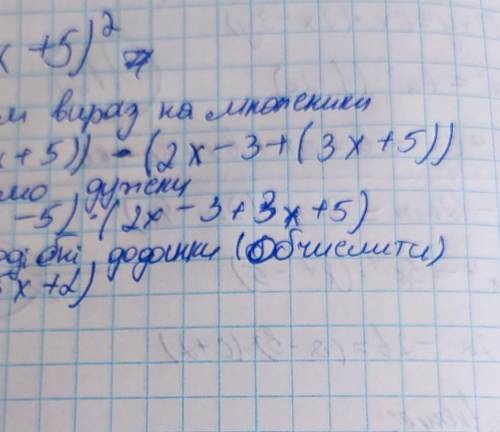 x + 5)² =
м вираз на множники
x + 5)) - (2x - 3 + (3x + 5))
мо дужки
- 5) · (2x - 3 + 3x + 5)
одібні доданки (Обчислити)
x + 2)